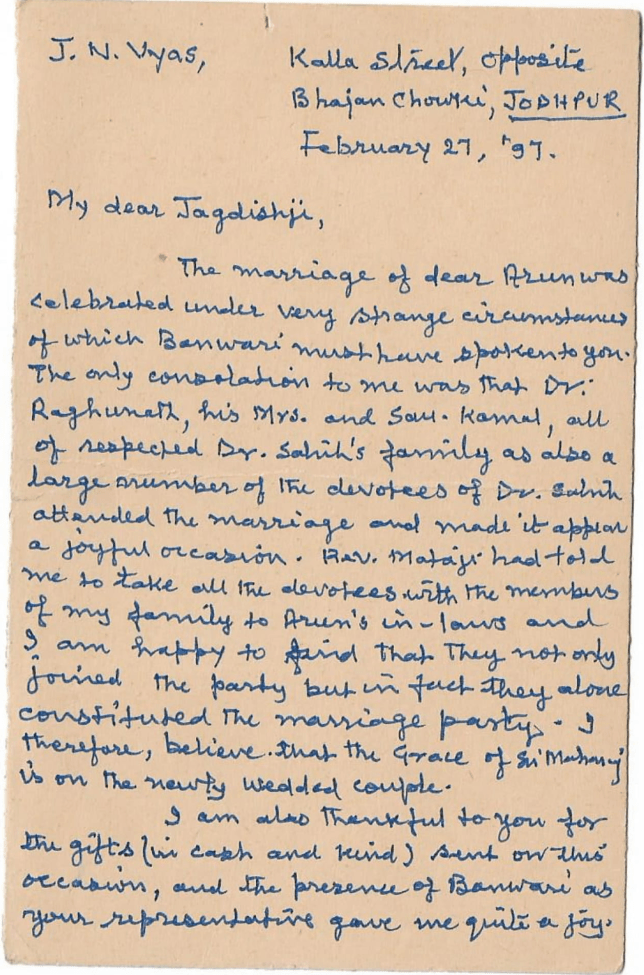 J. N. Vyas,
Kalla Street, opposite
Bhajan Chowki, JODHPUR
February 27, '97.
My dear Jagdishji,
The marriage of dear Arun was
celebrated under very strange circumstances
of which Banwari must have spoken to you.
The only consolation to me was that Dr.
Raghunath, his Mrs. and Sau. Kamal, all
of respected Dr. Sahib's family as also a
large number of the devotees of Dr. Sahib
attended the marriage and made it appear
a joyful occasion. Rev. Mataji had told
me to take all the devotees with the members
of my family to Arun's in-laws and
I am happy to find that they not only
joined the party but in fact they alone
constituted the marriage party. I
therefore, believe that the Grace of Sri Maharaj
is on the newly wedded couple.
I am also thankful to you for
the gifts (in cash and kind) sent on this
occasion, and the presence of Banwari as
your representative gave me quite a joy.